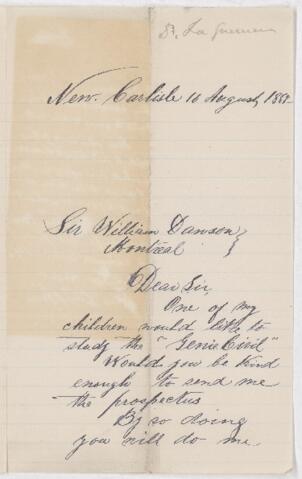 New. Carlisle 16 August, 188
Sir William Dawson }
Montreal
Dear Sir,
One of my
children would like to
study the "Genie Civil"
Would you be kind
enough to send me
the prospectus
By so doing
you will do me